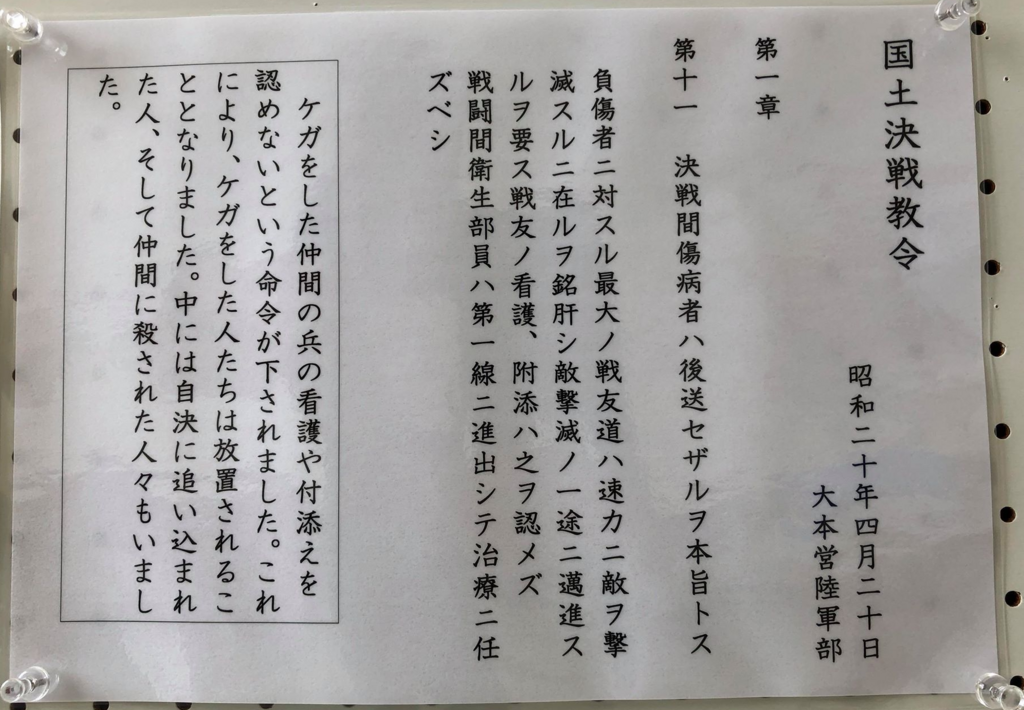 国土決戦教令
昭和二十年四月二十日
大本営陸軍部
第一章
第十一　決戦間傷病者ハ後送セザルヲ本旨トス
負傷者ニ対スル最大ノ戦友道ハ速カニ敵ヲ撃
滅スルニ在ルヲ銘肝シ敵撃滅ノ一途ニ邁進ス
ルヲ要ス戦友ノ看護、附添ハ之ヲ認メズ
戦闘間衛生部員ハ第一線ニ進出シテ治療ニ任
ズベシ
ケガをした仲間の兵の看護や付添えを
認めないという命令が下されました。これ
により、ケガをした人たちは放置されるこ
ととなりました。中には自決に追い込まれ
た人、そして仲間に殺された人々もいまし
た。